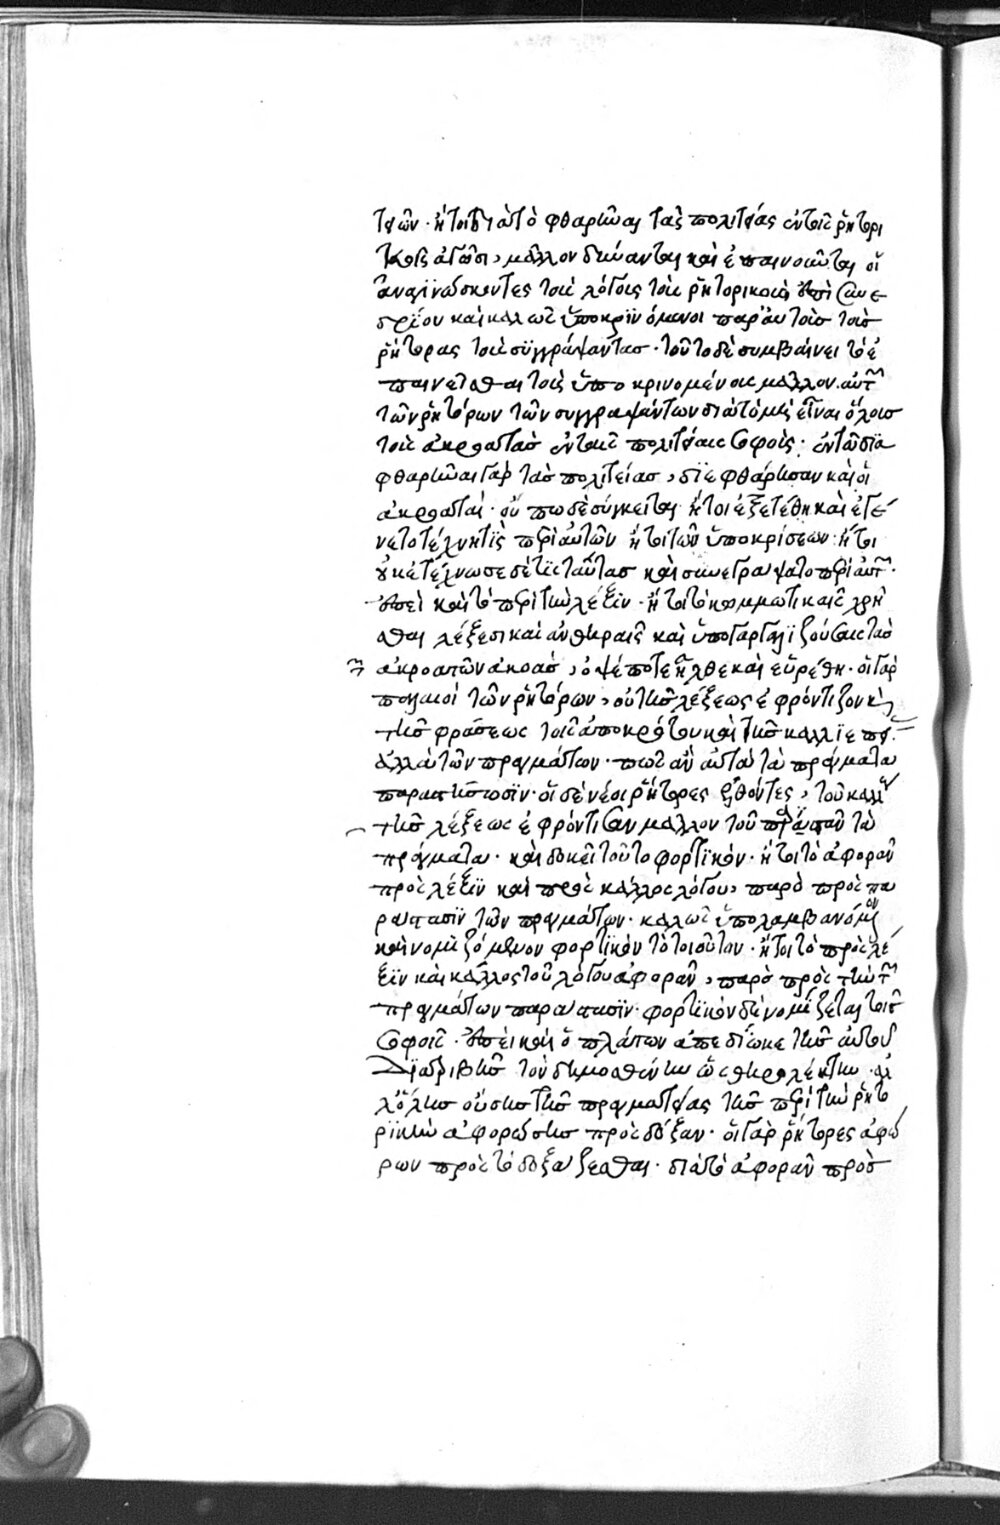 τειῶν· ἤτοι διὰ τὸ φθαρῆναι τὰς πολιτείας ἐν τοῖς ῥητορι
κοῖς ἀγῶσι, μᾶλλον δύνανται καὶ ἐπαινοῦνται οἱ
ἀναγινώσκοντες τοὺς λόγους τοὺς ῥητορικοὺς ἐπὶ συνε
δρίου καὶ καλῶς ὑποκρινόμενοι παρ' αὐτοὺς τοὺς
ῥήτορας τοὺς συγγράψαντας· τοῦτο δὲ συμβαίνει τὸ ἐ
παινεῖσθαι τοὺς ὑποκρινομένους μᾶλλον αὐτῶν
τῶν ῥητόρων τῶν συγγραψάντων διὰ τὸ μὴ εἶναι ὅλους
τοὺς ἀκροατὰς ἐν ταῖς πολιτείαις σοφούς·
φθαρῆναι γὰρ τὰς πολιτείας, διεφθάρησαν καὶ οἱ
ἀκροαταί· οὔπω δὲ σύγκειται ἤτοι ἐξετέθη καὶ ἐγέ
νετο τέχνη τὶς περὶ αὐτῶν ἤτοι τῶν ὑποκρίσεων· ἤτοι
οὐκ ἐτέχνωσε δέ τις ταύτας καὶ συνεγράψατο περὶ αὐτῶν·
ἐπεὶ καὶ τὸ περὶ τὴν λέξιν· ἤτοι τὸ κομμωτικαῖς χρῆ
σθαι λέξεσι καὶ ἀνθηραῖς καὶ ὑπογαργαλιζούσαις τὰς
ἀκροατῶν ἀκοάς, ὀψέ ποτε ἦλθε καὶ εὑρέθη· οἱ γὰρ
παλαιοὶ τῶν ῥητόρων, οὐ τῆς λέξεως ἐφρόντιζον καὶ
τῆς φράσεως τοῦ ἀποκρότου καὶ τῆς καλλιεπείας
ἀλλὰ τῶν πραγμάτων· πῶς ἂν αὐτὰ τὰ πράγματα
παραστήσωσιν· οἱ δὲ νέοι ῥήτορες ἐλθόντες, τοῦ κάλλους
τῆς λέξεως ἐφρόντισαν μᾶλλον τοῦ πράττειν τὰ
πράγματα· καὶ δοκεῖ τοῦτο φορτικόν· ἤτοι τὸ ἀφορᾶν
πρὸς λέξιν καὶ πρὸς κάλλος λόγου, παρὸ πρὸς πα
ράστασιν τῶν πραγμάτων· καλῶς ὑπολαμβανόμενον
καὶ νομιζόμενον φορτικὸν τὸ τοιοῦτον· ἤτοι τὸ πρὸς λέ
ξιν καὶ κάλλος τοῦ λόγου ἀφορᾶν, παρὸ πρὸς τὴν τῶν
πραγμάτων παράστασιν· φορτικὸν δὲ νομίζεται τοῖς
σοφοῖς· ἐπεὶ καὶ ὁ πλάτων ἀπεδίωκε τῆς αὐτοῦ
διατριβῆς τὸν δημοσθένην ὡς θηρολέκτην· ἀλ
λ' ὅλης οὔσης τῆς πραγματείας τῆς περὶ τὴν ῥητο
ρικὴν ἀφορώσης πρὸς δόξαν· οἱ γὰρ ῥήτορες ἀφώ
ρων πρὸς τὸ δοξάζεσθαι· διὰ τὸ ἀφορᾶν πρὸς